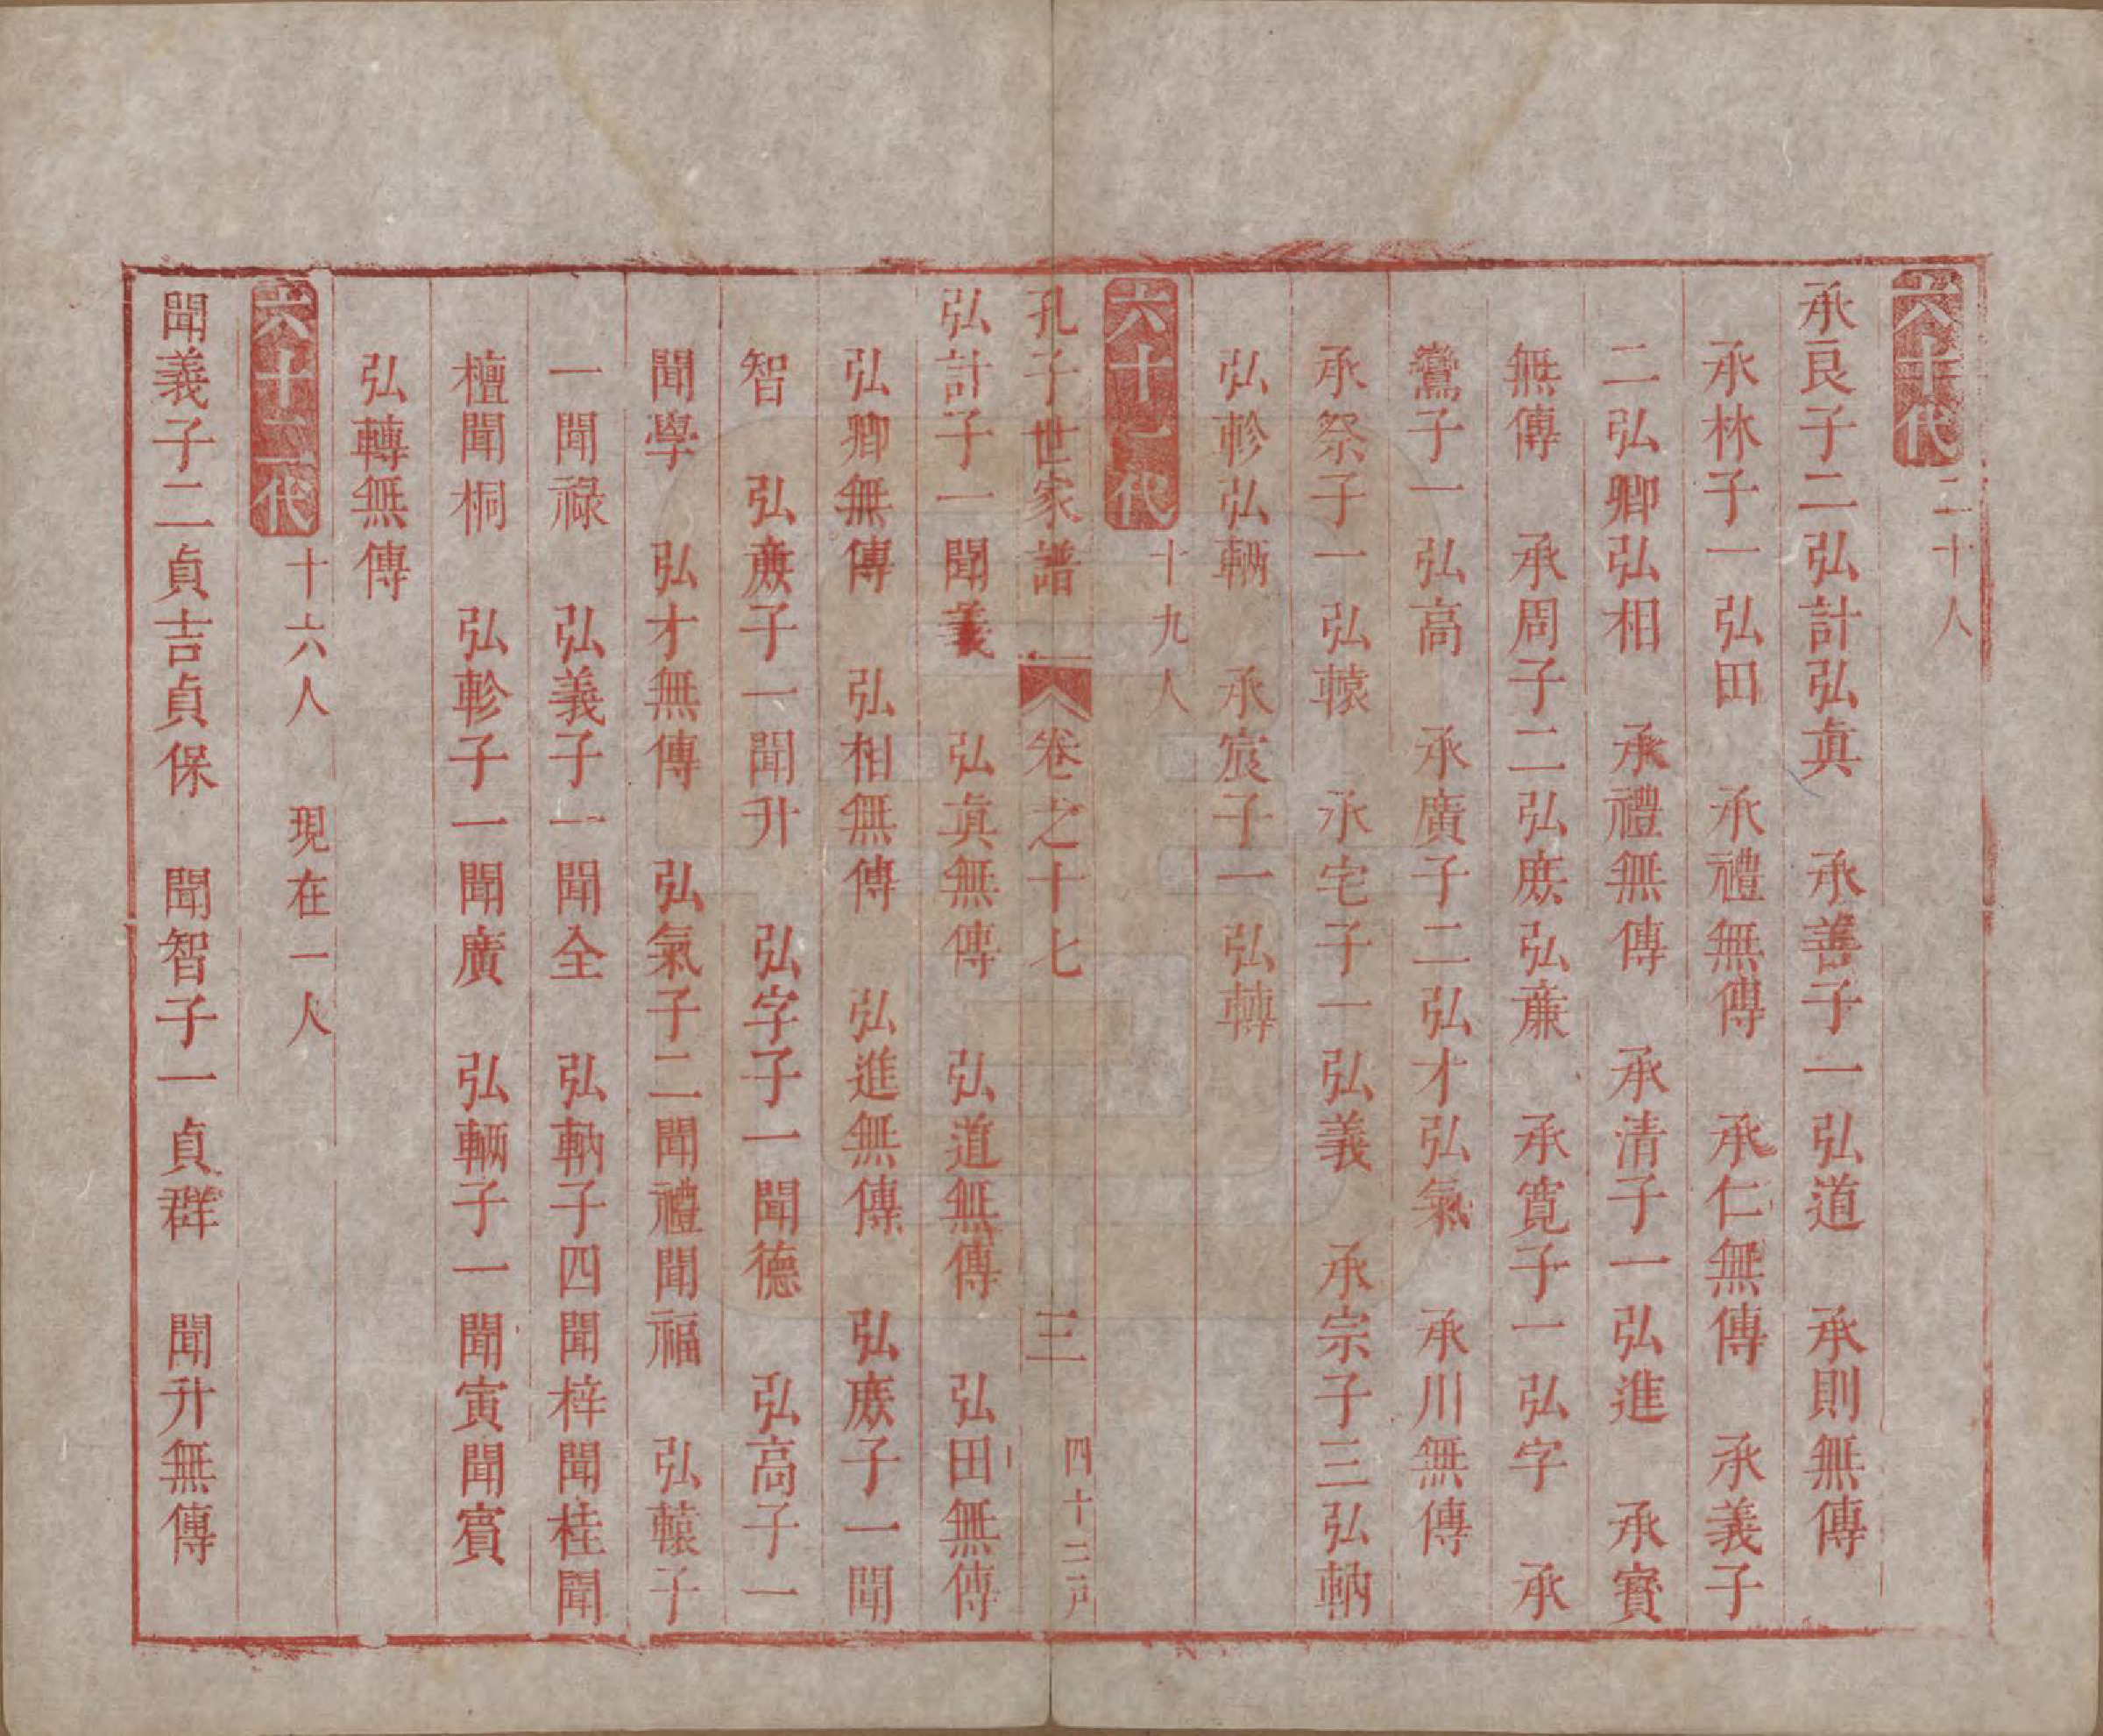 六十代 二十人
承良子二弘計弘真 承善子一弘道 承則無傳
承林子一弘田 承禮無傳 承仁無傳 承義子
二弘卿弘相 承禮無傳 承清子一弘進 承賓
無傳 承周子二弘庻弘亷 承寛子一弘字 承
鸞子一弘高 承廣子二弘才弘氣 承川無傳
承祭子一弘轅 承宅子一弘義 承宗子三弘軜
弘軫弘輛 承宸子一弘轉
六十一代 十九人
孔子世家譜 卷之十七 三 四十二戸
弘計子一聞義 弘真無傳 弘道無傳 弘田無傳
弘卿無傳 弘相無傳 弘進無傳 弘庻子一聞
智 弘亷子一聞升 弘字子一聞德 弘高子一
聞學 弘才無傳 弘氣子二聞禮聞福 弘轅子
一聞祿 弘義子一聞全 弘軜子四聞梓聞桂聞
檀聞桐 弘軫子一聞廣 弘輛子一聞寅聞賓
弘轉無傳
六十二代 十六人 現在一人
聞義子二貞吉貞保 聞智子一貞群 聞升無傳